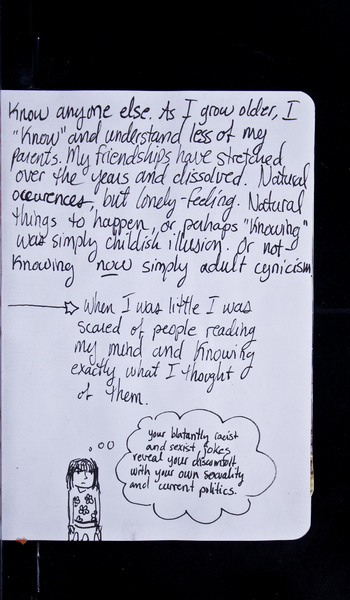 Know anyone else. As I grow older, I
"Know" and understand less of my
parents. My friendships have stretched
over the years and dissolved. Natural
occurences, but lonely-feeling. Natural
things to happen, or perhaps "Knowing"
was simply childish illusion. Or not
Knowing now simply adult cynicism.
When I was little I was
scared of people reading
my mind and Knowing
exactly what I thought
of them.
your blatantly racist
and sexist jokes
reveal your discomfort
with your own sexuality
and current politics.